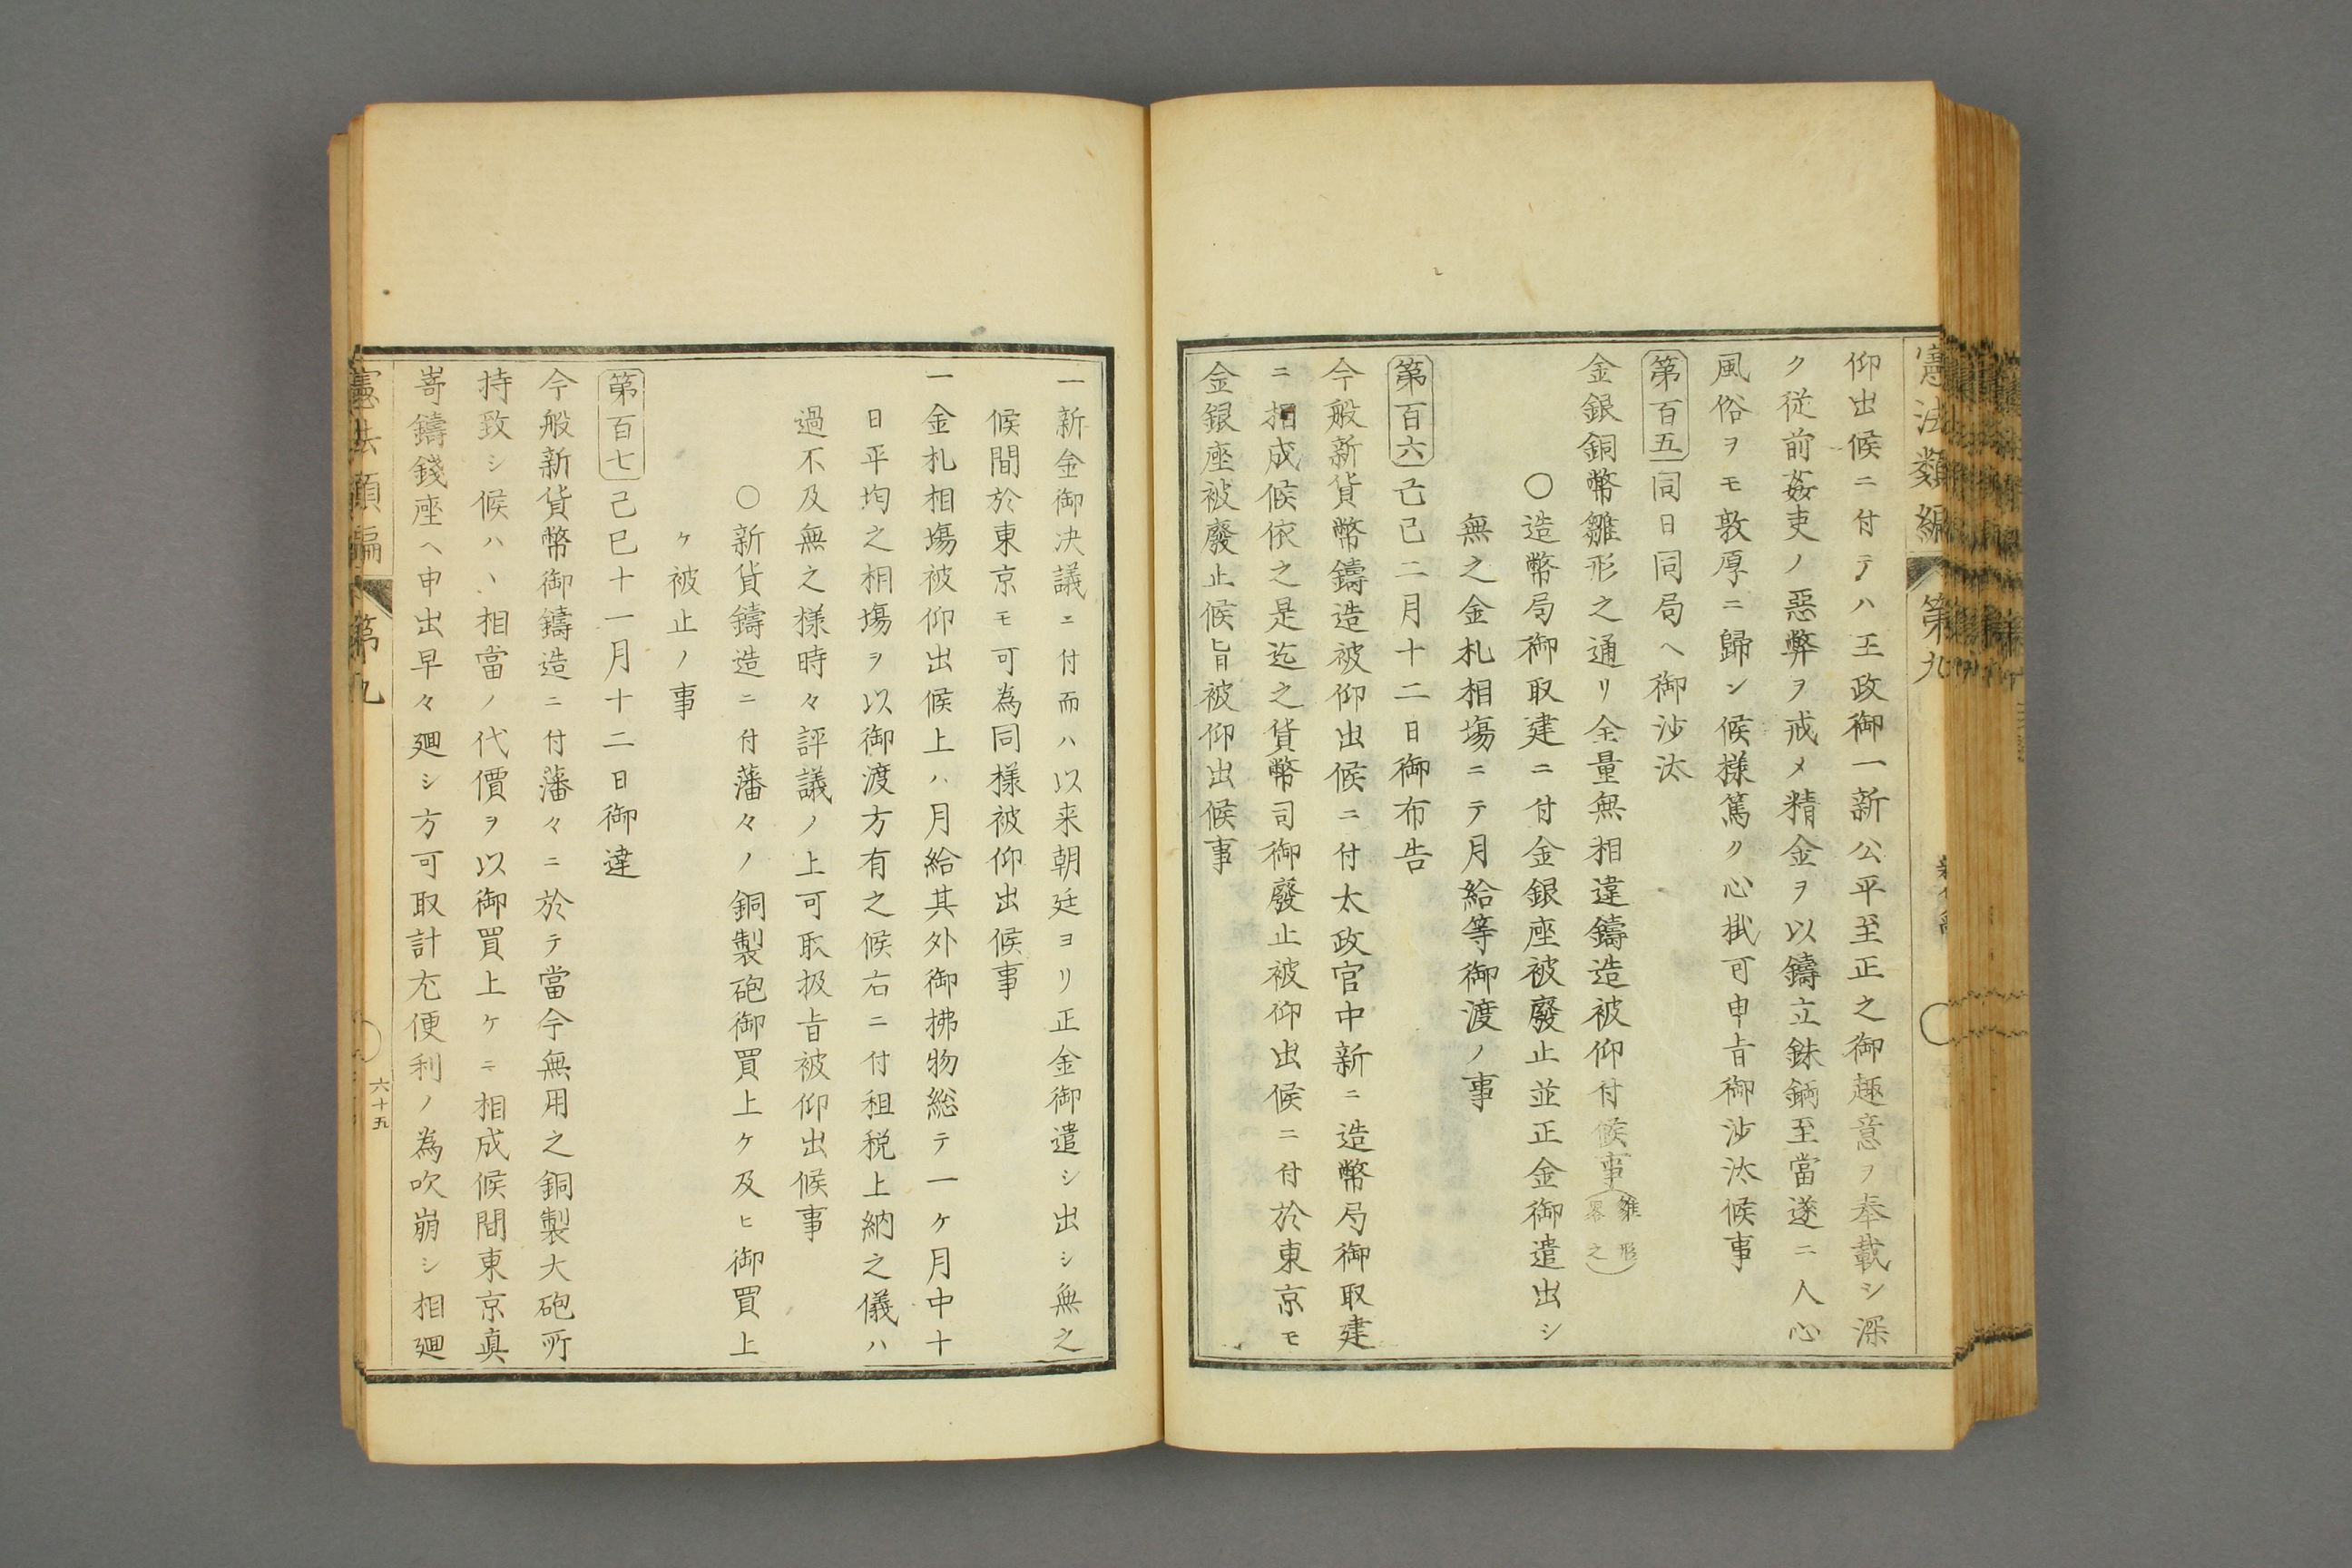 憲法類編
第九
仰出候ニ付テハ王政御一新公平至正之御趣意ヲ奉載シ深
ク従前姦吏ノ惡弊ヲ戒メ精金ヲ以鑄立銖鈿至當遂ニ人心
風俗ヲモ敦厚ニ歸シ候様篤ク心掛可申旨御沙汰候事
第百五 同日同局ヘ御沙汰
金銀銅幣雛形之通リ全量無相違鑄造被仰付候事(雛形畧之)
〇造幣局御取建ニ付金銀座被廢止並正金御遣出シ
無之金札相塲ニテ月給等御渡ノ事
第百六 己巳二月十二日御布告
今般新貨幣鑄造被仰出候ニ付太政官中新ニ造幣局御取建
ニ相成候依之是迄之貨幣司御廢止被仰出候ニ付於東京モ
金銀座被廢止候旨被仰出候事
一新金御决議ニ付而ハ以来朝廷ヨリ正金御遣シ出シ無之
候間於東京モ可為同様被仰出候事
一金札相塲被仰出候上ハ月給其外御拂物総テ一ケ月中十
日平均之相塲ヲ以御渡方有之候右ニ付租税上納之儀ハ
過不及無之様時々評議ノ上可取扱旨被仰出候事
〇新貨鑄造ニ付藩々ノ銅製砲御買上ケ及ヒ御買上
ケ被止ノ事
第百七 己巳十一月十二日御達
今般新貨幣御鑄造ニ付藩々ニ於テ當今無用之銅製大砲所
持致シ候ハヽ相當ノ代價ヲ以御買上ケニ相成候間東京真
嵜鑄錢座ヘ申出早々廻シ方可取計尤便利ノ為吹崩シ相廻
憲法類編
第九
六十五